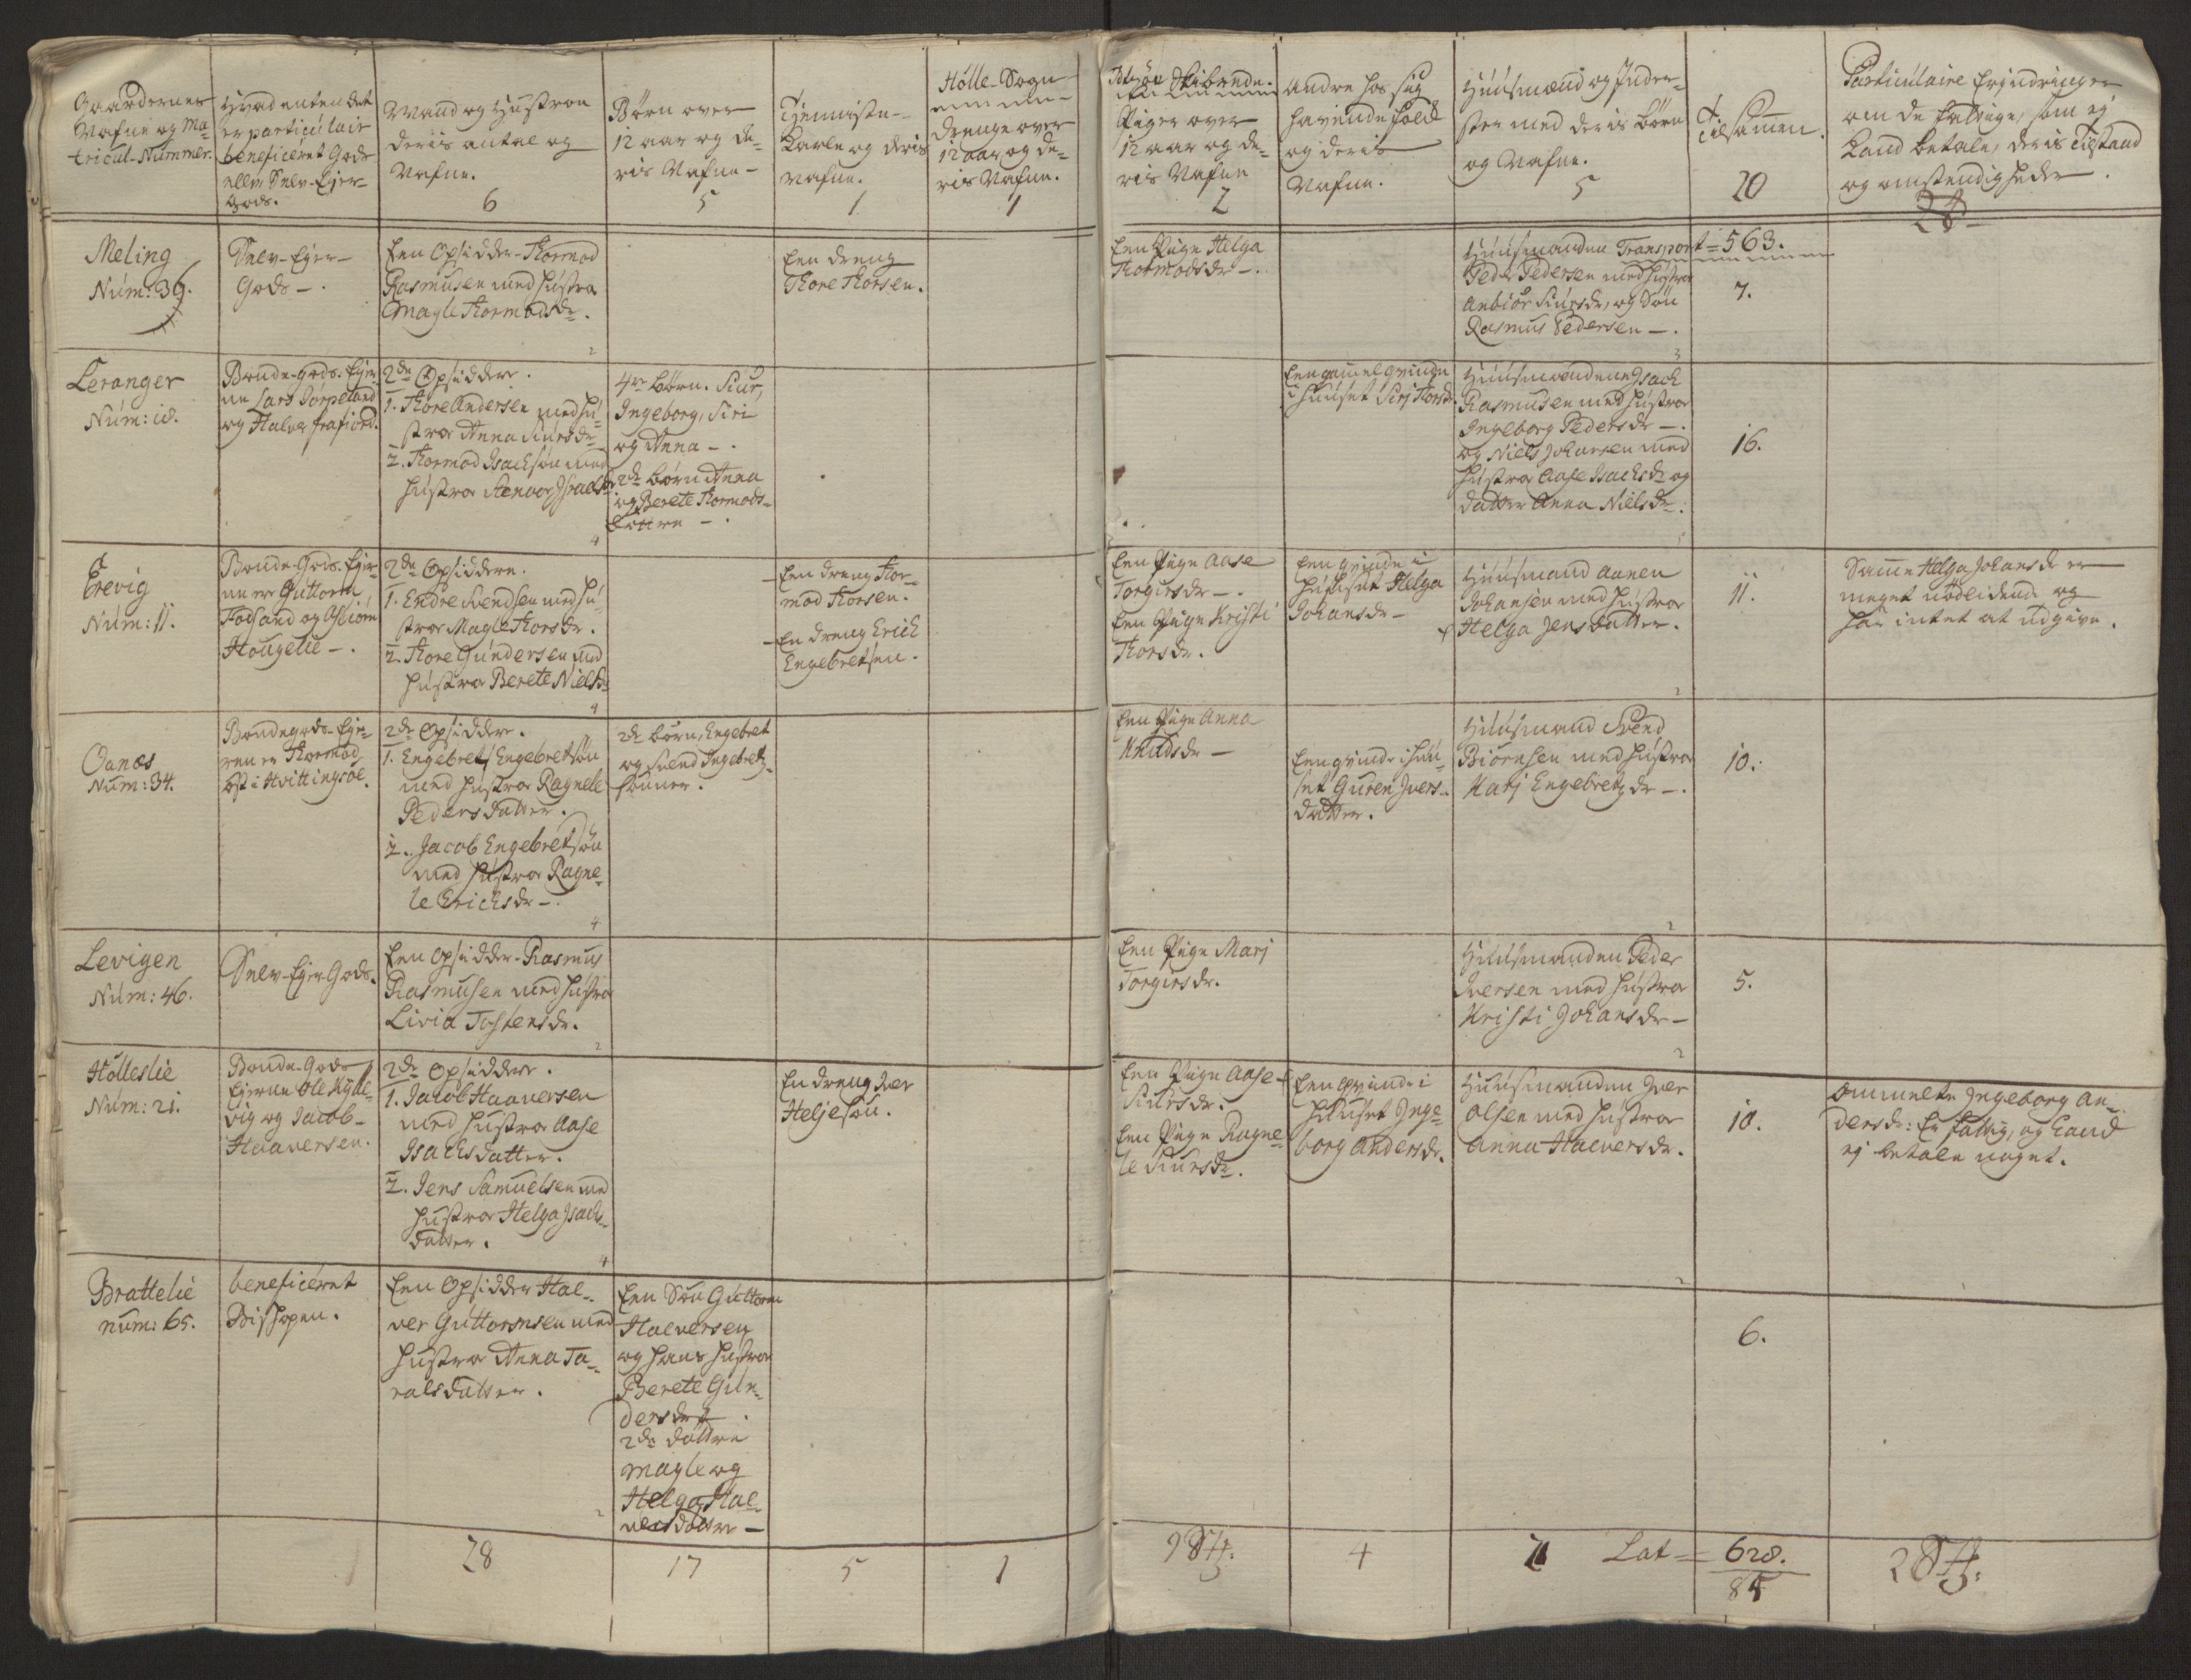 Gaardernes
Nafne og Ma-
tricul-Nummer.
Hvad enten det
er particulair
beneficeret Gods
eller Selv-Ejer-
Gods.
Mand og Hustroe
deris antal og
Nafne.
6
Børn over
12 aar og de-
ris Nafne-
5
Tienniste-
Karle og deris
nafne.
1
Hölle-Sogn
drenge over
12 aar og de-
ris Nafne.
1
Skibrede.
Piger over
12 aar og de-
ris Nafne
2
Andre hos sig
havende folk
og deris
Nafne.
Huusmænd og Inder-
ster med deris börn
og Nafne.
5
Tilsamen.
20
Particulaire Erindringer
om de fattige, som ej
kand betale, deris tilstand
og omstendigheder.
28
Meling
Num: 36.
Selv-Ejer-
Gods-.
Een Opsidder Thormod
Rasmusen med hustro
Magle Thormodsdr.
2
Een dreng
Thore Thorsen.
Een Pige Helga
Thormodsdr-.
Huusmanden Transport = 563.
Peder Pedersen med hustro
Anbiör Siursdr, og Sön
Rasmus Pedersen-.
3
7.
Leranger
Num: 18.
Bonde-Gods. Ejer-
ne Lars Jorpeland
og Halvor frafiord.
2de Opsiddere.
1. Thore Andersen med hu-
stroe Anna Siursdr
2. Thormod Isachsön med
hustroe Aenvor Israelsdr
4
4re börn. Siur,
Ingeborg, Siri
og Anna-.
2de börn Anna
og Berete Thormods-
döttre-.
Een gamel qvinde
i huuset Sirj Thorsdr
Huusmændene Isach
Rasmusen med hustroe
Ingeborg Pedersdr-.
og Niels Johansen med
hustroe Aase Isachsdr og
datter Anna Nielsdr.
5
16.
Erevig
Num: 11.
Bonde-Gods. Ejer-
ne er Guttorm
Fossand og Asbiörn
Hougelie-.
2de Opsiddere.
1. Endre Svendsen med hu-
stroe Magle Thorsdr.
2. Thore Gundersen med
hustroe Berete Nielsdr
4
Een dreng Thor-
mod Thorsen.
En dreng Erich
Engebretsen.
Een Pige Aase
Torgersdr-.
Een Pige Kristi
Thorsdr.
Een qvinde i
huuset Helga
Johansdr-
Huusmand Aanen
Johansen med hustroe
Helga Jens datter.
2
11.
Samme Helga Johansdr er
meget nödlidende og
har intet at udgive.
Oanæs
Num: 34.
Bondegods-Eje-
ren er Thormod
Öst i Hvittingsöe.
2de Opsiddere.
1. Engebret Engebretsön
med hustroe Ragnele
Pedersdatter.
2. Jacob Engebretsön
med hustroe Ragne-
le Erichsdr-.
4
2de börn, Engebret
og Svend Ingebretz-
sönner.
Een Pige Anna
Knudsdr-
Een qvinde i huu-
set Guren Ivers-
datter.
Huusmand Svend
Biörnsen med hustroe
Karj Engebretzdr-.
2
10.
Levigen
Num: 46.
Selv-Ejer Gods.
Een Opsidder-Rasmus
Rasmusen med hustroe
Livia Tostensdr.
2
Een Pige Marj
Torgersdr.
Huusmanden Peder
Iversen med hustroe
Kristi Johansdr-
2
5.
Hölleslie
Num: 21.
Bonde-Gods
Ejerne Ole Kylle-
vig og Jacob-
Haaversen.
2de Opsiddere.
1. Jacob Haaversen
med hustroe Aase
Isachsdatter.
2. Jens Samuelsen med
hustroe Helga Isachs-
datter.
4
En dreng Iver
Heljesön.
Een Pige Aase
Siursdr.
Een Pige Ragne-
le Siursdr.
Een qvinde i
huuset Inge-
borg Andersdr.
Huusmanden Iver
Olsen med hustroe
Anna Halversdr.
2
10.
Ommelte Ingeborg An-
dersdr: Er fattig, og kand
ej betale noget.
Brattelie
num: 65.
beneficeret
Bishopen.
Een Opsidder Hal-
ver Guttormsen med
hustroe Anna Ta-
ralsdatter.
2
Een Sön Guttorm
Halversen
og hans hustroe
Berete Gun-
dersdr
2de döttre
Magle og
Helga Hal-
versdöttre-
6.
28
17
5
1
4
Lat= 628.
85